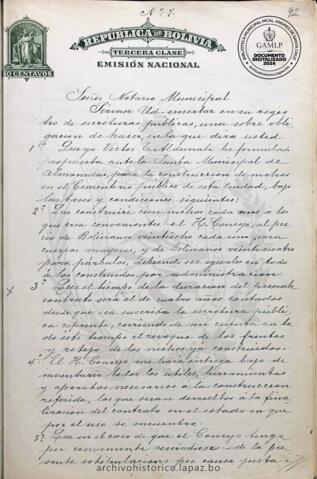 Nº 77.
92
REPUBLICA DE BOLIVIA
TERCERA CLASE
EMISIÓN NACIONAL
10 CENTAVOS
BIBLIOTECA MUNICIPAL MCAL. ANDRÉS DE SANTA CRUZ
GAMLP
DOCUMENTO
DIGITALIZADO
2024
archivohistorico.lapaz.bo
Señor Notario Municipal
Sírvase Ud. insertar en su regis
tro de escrituras públicas, una sobre obli
gacion de hacer, en la que dirá usted
1º Que yo Víctor E. Aldunate he formulado
propuesta ante la Junta Municipal de
Almonedas, para la construccion de nichos
en el Cementerio publico de esta ciudad, bajo
las bases y condiciones siguientes:
2º Que construiré cien nichos cada mes a los
que crea conveniente el H. Consejo, al pre
cio de Bolivianos veintiocho cada uno para
cuerpos mayores, y de bolivianos veinticuatro
para párbulos, debiendo ser iguales en todo
à los construidos por administración.
x
3º Que el tiempo de la duración del presente
contrato será el de cuatro años contados
desde que se suscriba la escritura públi
ca referente, corriendo de mi cuenta en to
do este tiempo el revoque de los frentes
y retejo de los nichos ya construidos.
4º El H. Consejo me hará entrega bajo de
inventario todos los útiles, herramientas
y aparatos necesarios à la construccion
referida, los que serán devueltos à la fina
lización del contrato en el estado en que
por el uso se encuentre.
5º Que en el caso de que el Consejo tenga
por conveniente rescindirse de la pre
sente estipulacion por causa justa
archivohistorico.lapaz.bo